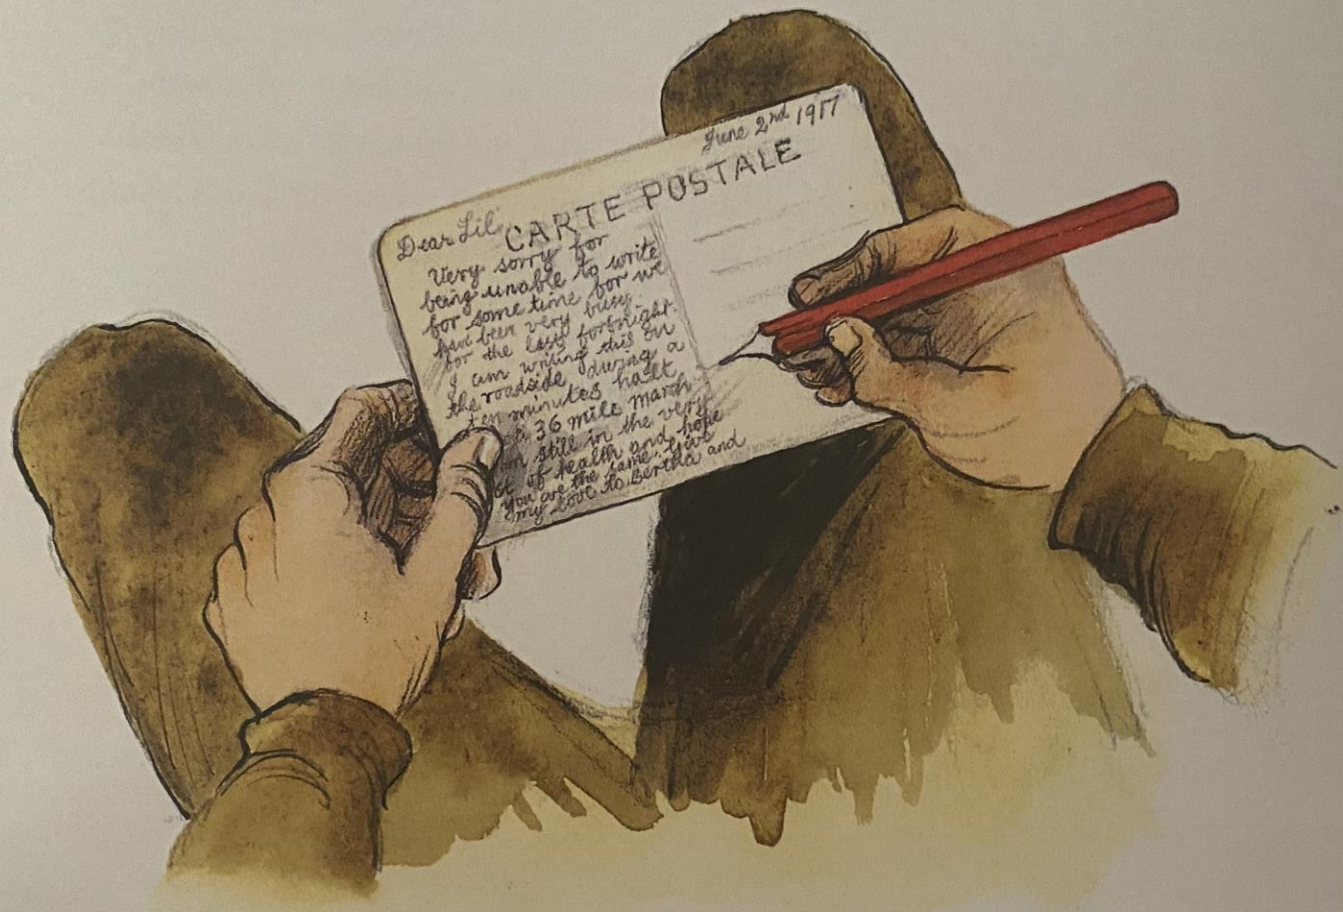 June 2nd 1917
CARTE POSTALE
Dear Lil
Very sorry for
being unable to write
for some time for we
have been very busy
for the last fortnight
I am writing this on
the roadside during a
ten minutes halt
36 mile march
am still in the very
of health and hope
you are the same. Give
my love to Bertha and